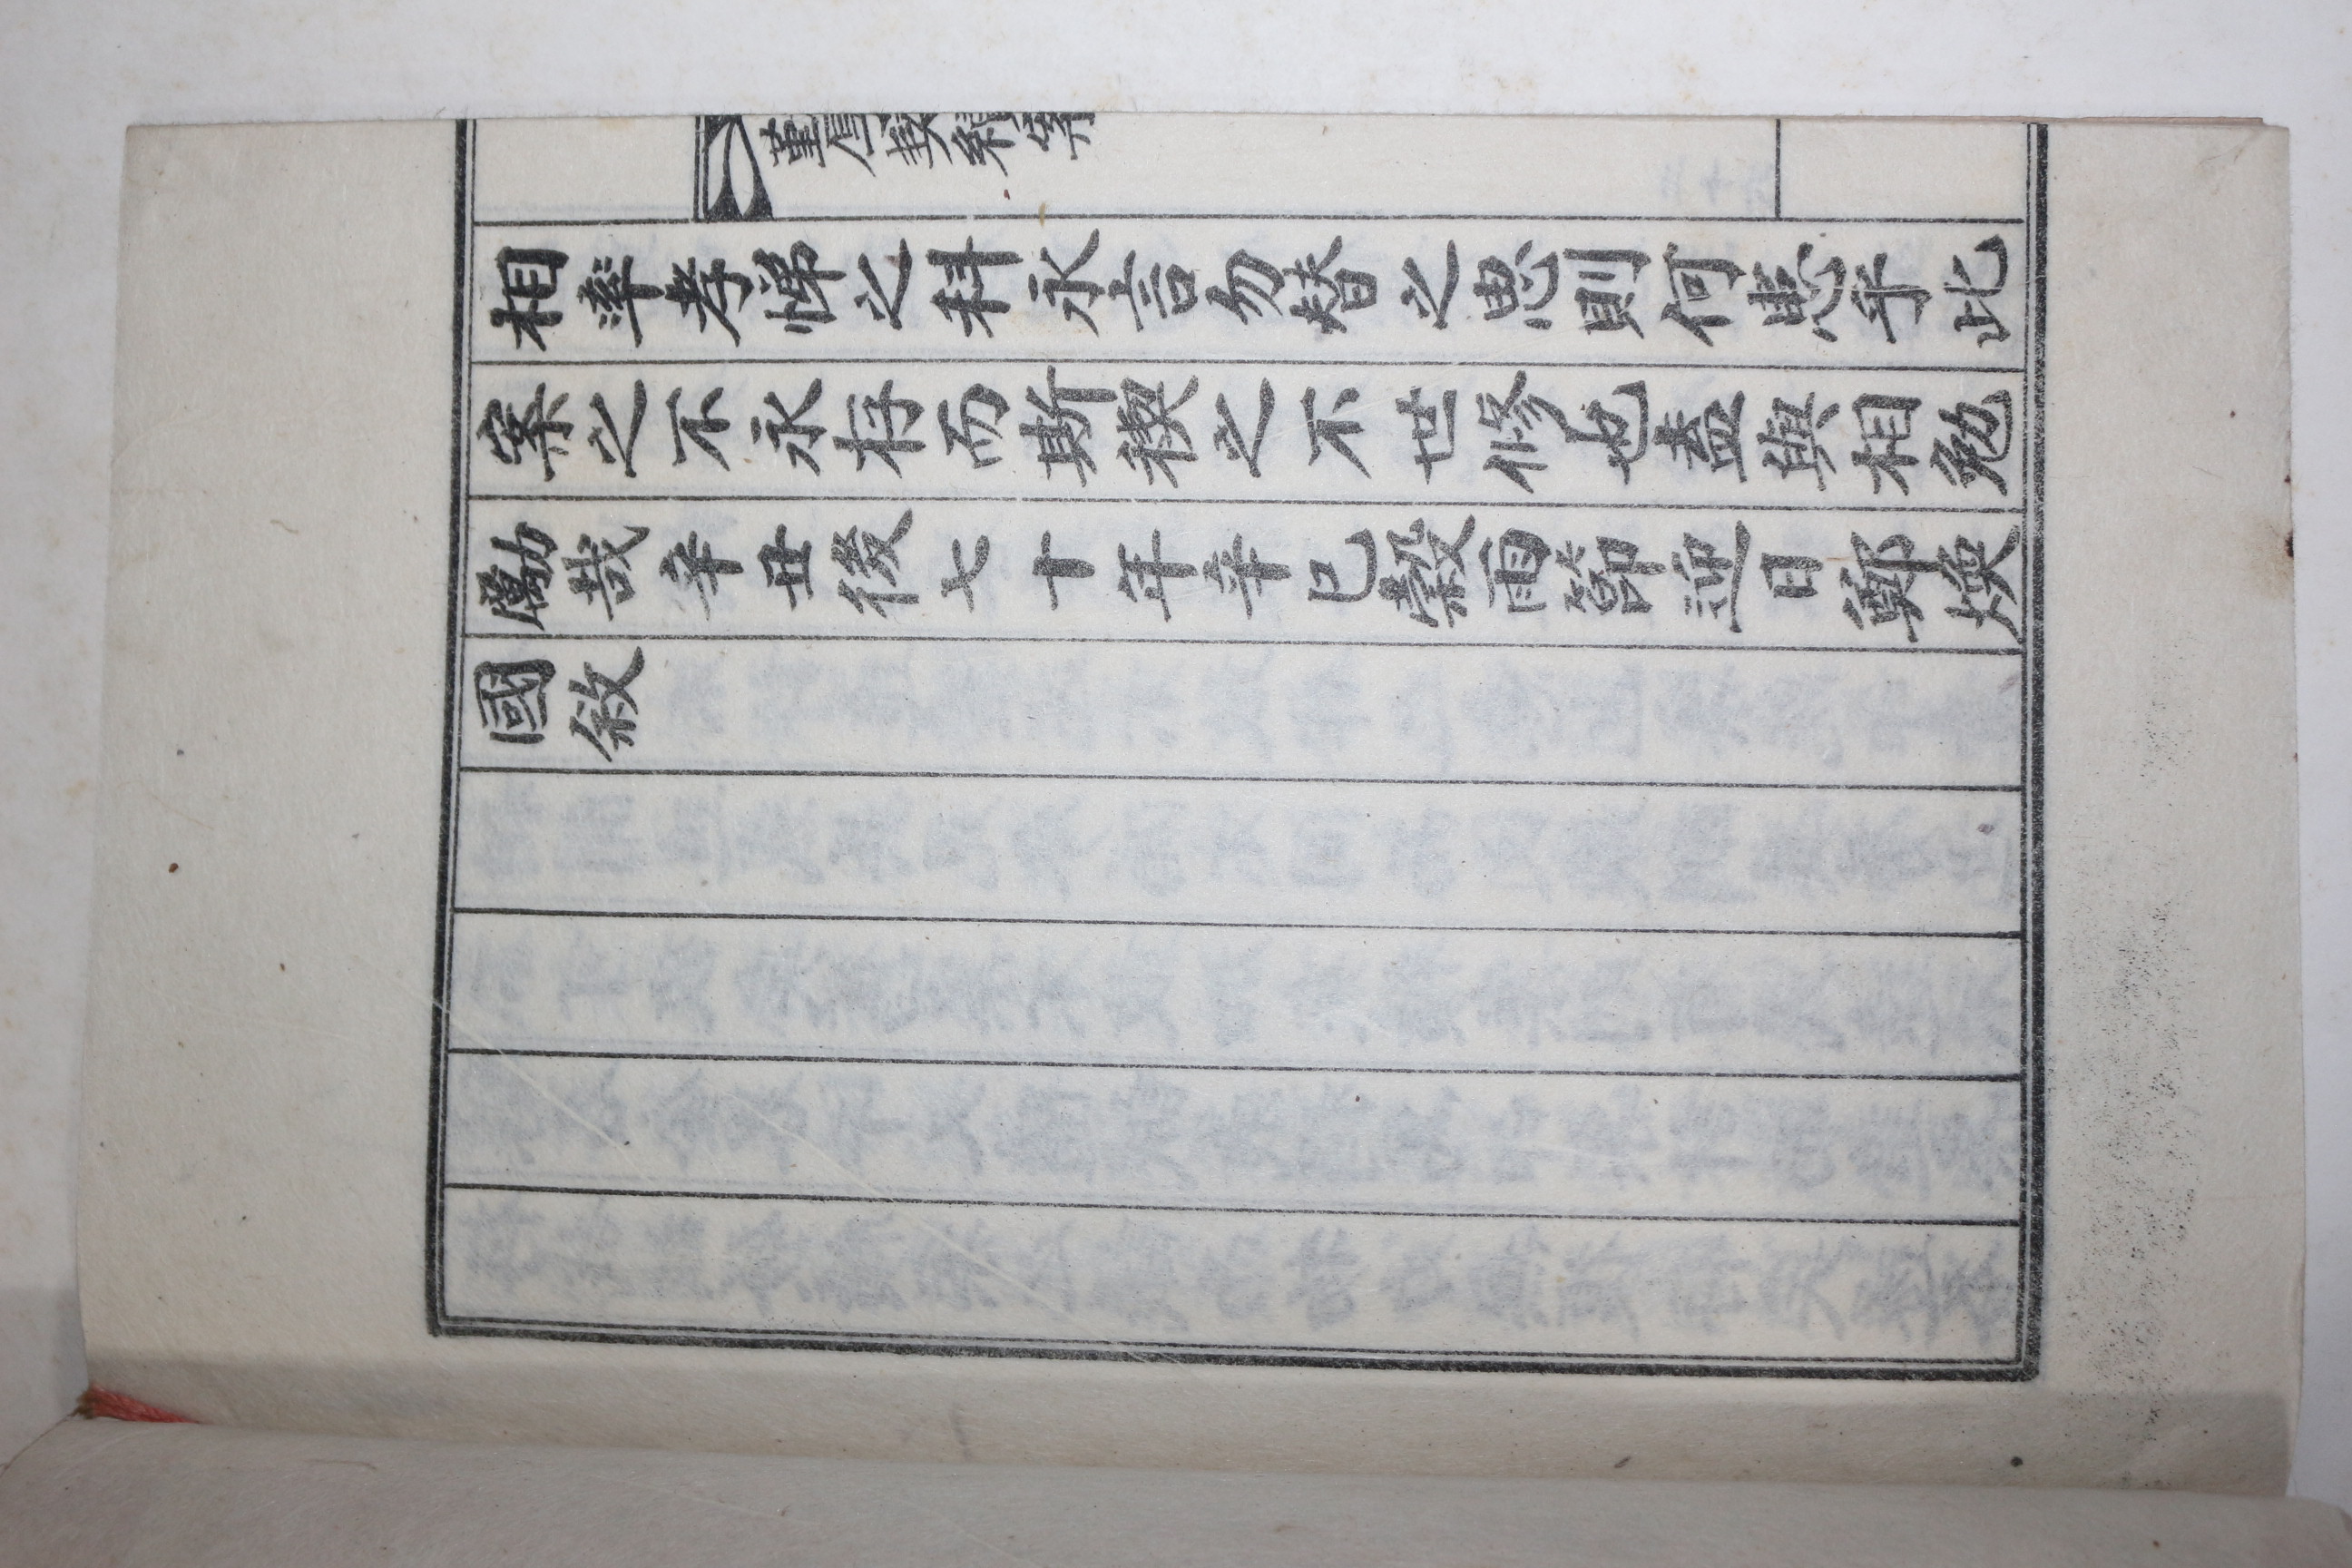 相率孝悌之科永言勿替之思則何患乎此
案之不永存而斯稧之不世修也盍與相勉
勵哉辛丑後七十年辛巳穀雨節迎日鄭煥
國敍